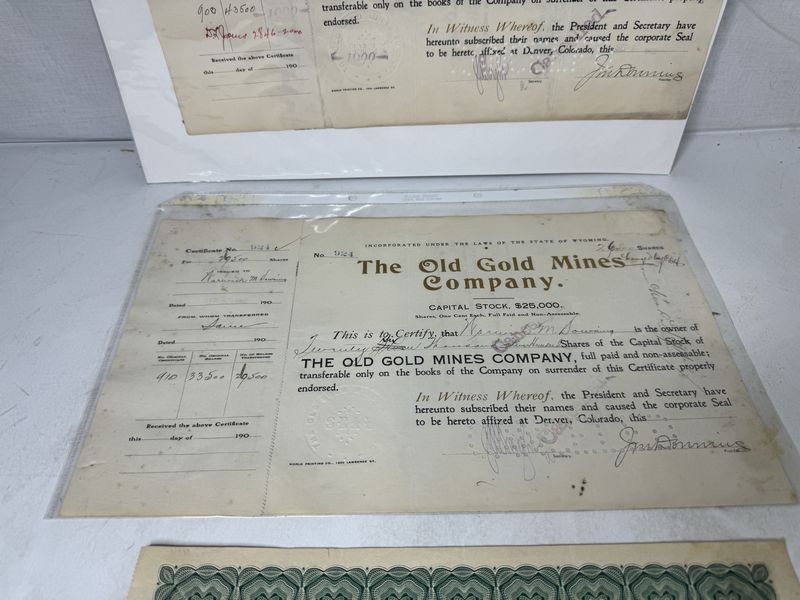 908 43500
transferable only on the books of the Company on surrender of this Certificate properly
endorsed.
2846-2000
1000
In Witness Whereof, the President and Secretary have
hereunto subscribed their names and caused the corporate Seal
to be hereto affixed at Denver, Colorado, this
Received the above Certificate
this day of 190
WORLD PRINTING CO., LAWRENCE ST.
Secretary
President
INCORPORATED UNDER THE LAWS OF THE STATE OF WYOMING.
Certificate No. 924
For Shares
ISSUED TO
Warwick M Downing
Dated 190
FROM WHOM TRANSFERRED
Same
Dated 190
No. Original Certificate
No. Original Shares
No. of Shares Transferred
910 33500
Received the above Certificate
this day of 190
No. 924
26 SHARES
The Old Gold Mines
Company.
CAPITAL STOCK, $25,000.
Shares, One Cent Each, Full Paid and Non-Assessable.
This is to Certify, that Warwick M Downing is the owner of
Twenty Six Thousand Shares of the Capital Stock of
THE OLD GOLD MINES COMPANY, full paid and non-assessable;
transferable only on the books of the Company on surrender of this Certificate properly
endorsed.
In Witness Whereof, the President and Secretary have
hereunto subscribed their names and caused the corporate Seal
to be hereto affixed at Denver, Colorado, this
WORLD PRINTING CO., LAWRENCE ST.
Secretary
President